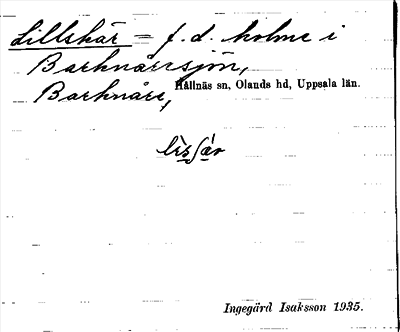 Lillskär = f. d. holme i
Barknårrsjön,
Barknåre, Hållnäs sn, Olands hd, Uppsala län.
Ingegärd Isaksson 1935.